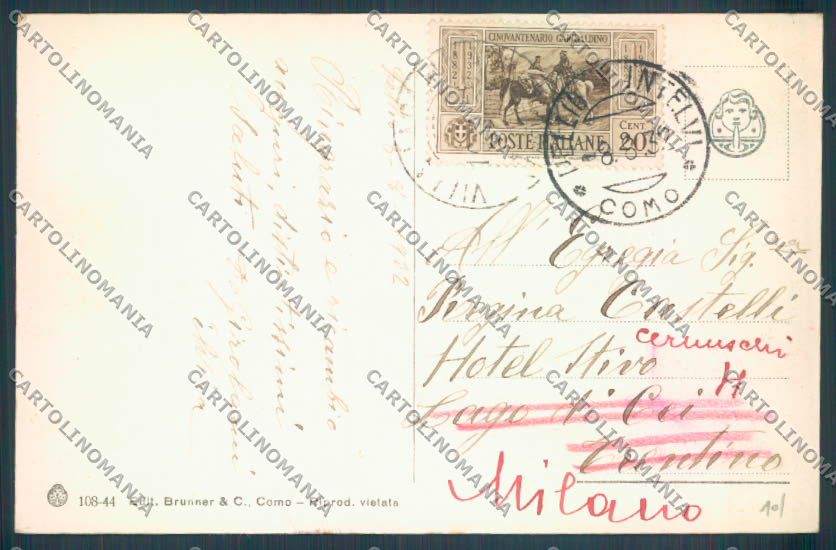 CINQVANTENARIO GARIBALDINO
1882
1932
POSTE ITALIANE
CENT 20
INTELVI
COMO
Ringrazio e ricambio
auguri, distintissimi
saluti
All' Egregia Sig.
Regina Castelli
Hotel Stivo
cernuschi
4
Lago di Cei
Trentino
Milano
108-44 Edit. Brunner & C., Como – Riprod. vietata
10/
CARTOLINOMANIA